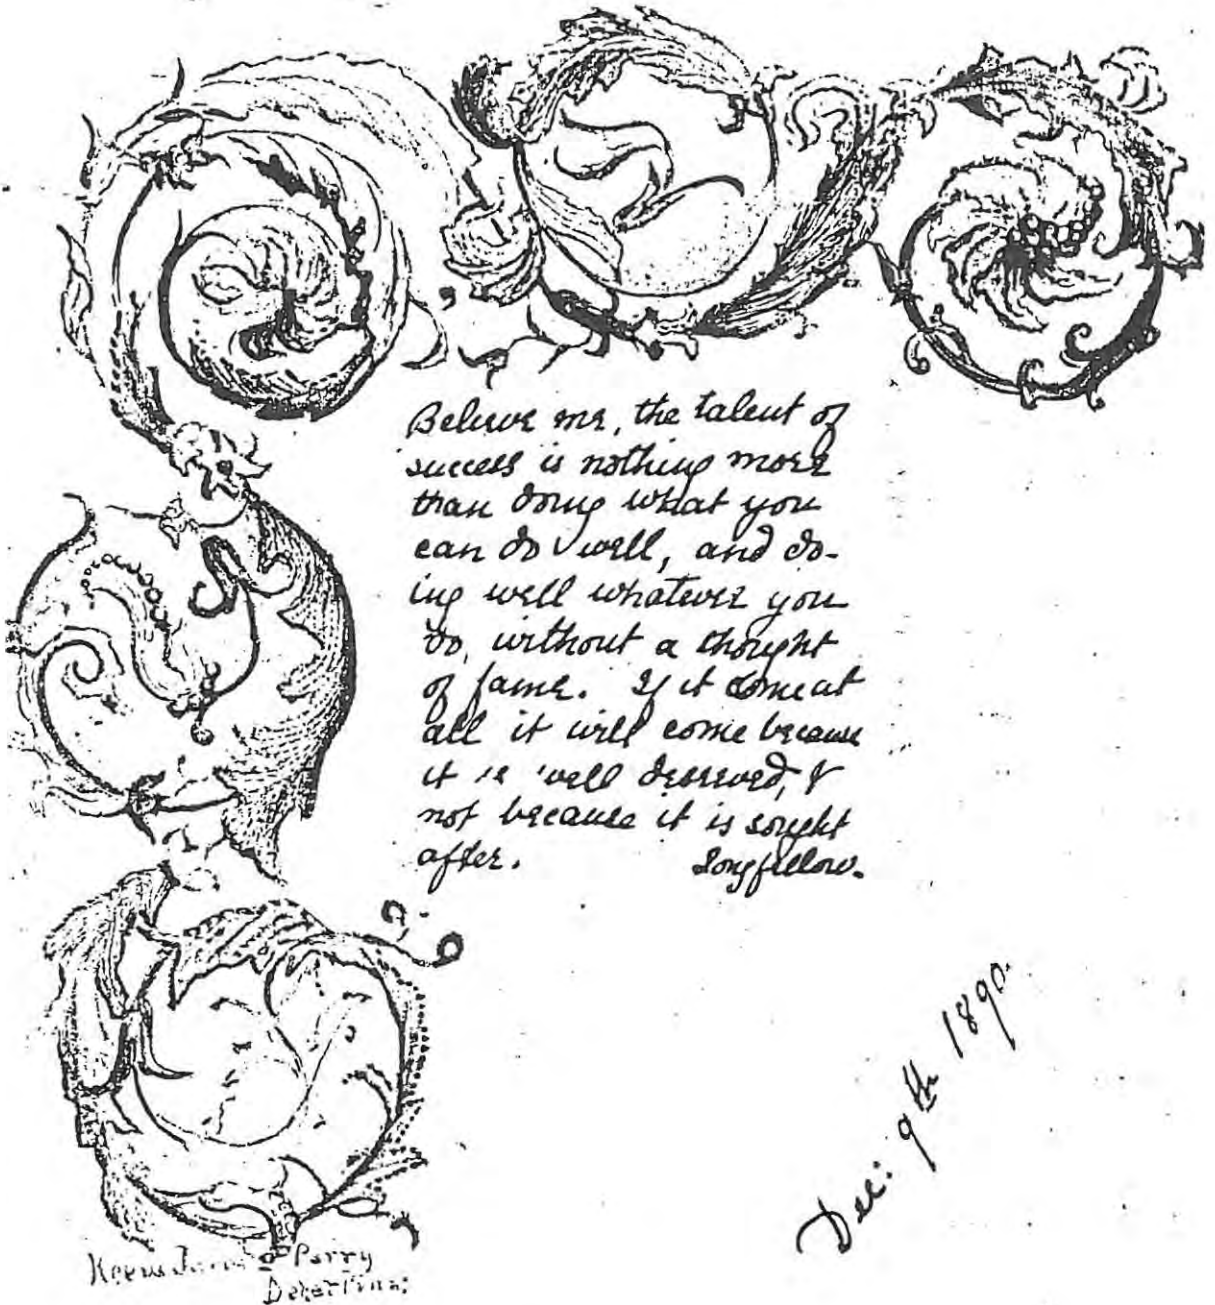 Believe me, the talent of
success is nothing more
than doing what you
can do well, and do-
ing well whatever you
do, without a thought
of fame. If it come at
all it will come because
it is well deserved, &
not because it is sought
after. Longfellow.
Dec: 9th 1890
Parry